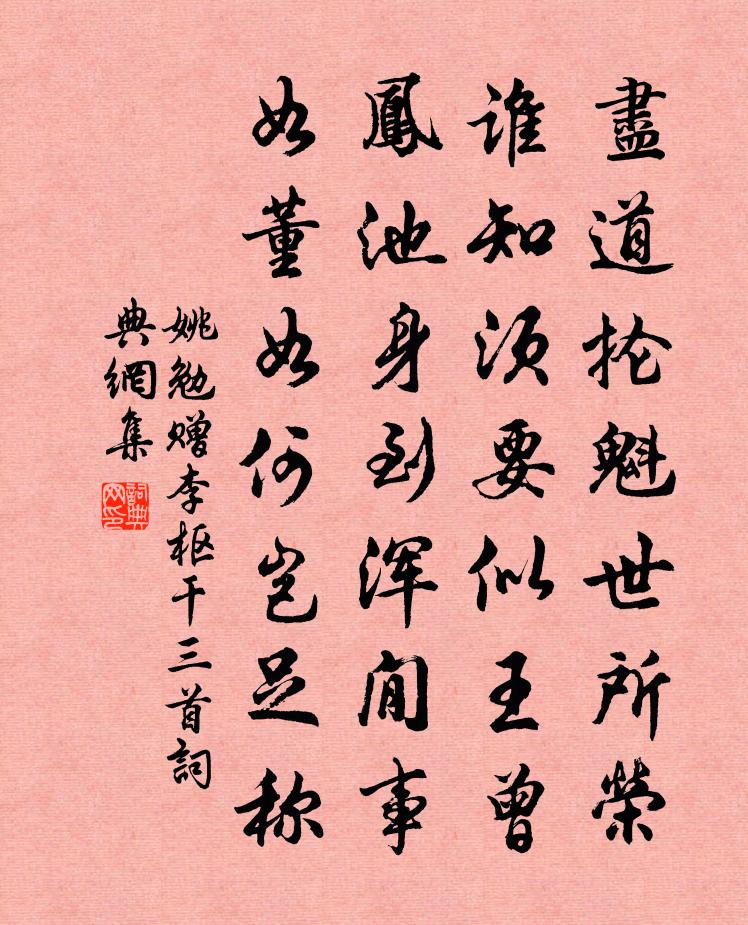 盡道抡魁世所榮
誰知須要似王曾
鳳池身到浑閒事
如董如何岂足称
姚勉赠李枢干三首詞
典網集
詞典
网印